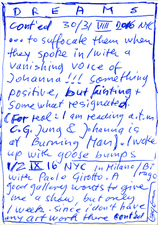 DREAMS
cont'ed 30/31 VIII 2016 NYC
... to suffocate them when
they spoke in/with a
vanishing voice of
Johanna!!! something
positive, but fainting +
somewhat resignated.
(For Hol: I am reading a.t.m.
C.G. Jung & Johanna is
at Burning Man). I wake
up with goose bumps
1/2 IX 16 NYC In Milano/Bi
with Paolo Girotto. A
good gallery wants to give
me a show, but only
1 week. Since I don't have
any art work there cont'ed